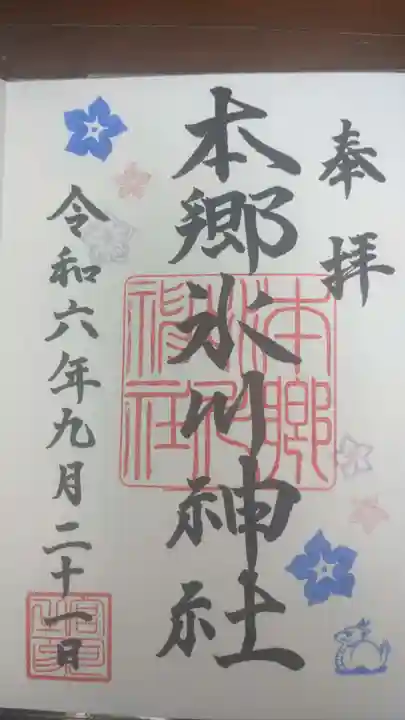 奉拝
本郷氷川神社
令和六年九月二十一日
本郷
氷川
神社